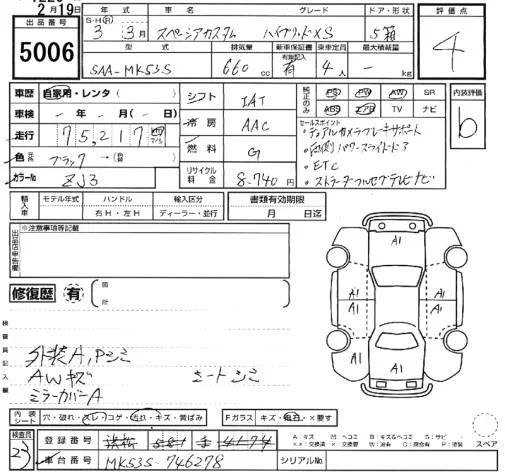 2月19日
出品番号
5006
年式 車名 グレード ドア・形状
S・H(R) 3年 3月 スペーシアカスタム ハイブリッドXS 5箱
型式 排気量 新車保証書 乗車定員 最大積載量
SAA-MK53S 660cc 有 4人 - kg
評価点
4
車歴 自家用・レンタ・( )
車検 - 年 - 月( - 日)
走行 75,217
色 ブラック →( )
カラーNo ZJ3
シフト IAT
冷房 AAC
燃料 G
リサイクル料金 8,740円
純正のみ
PS PW AW SR
ABS エアB TV ナビ
セールスポイント
・デュアルカメラブレーキサポート
・両側パワースライドドア
・ETC
・ストラーダフルセグテレビナビ
内装評価
b
輸入車 モデル年式 ハンドル 輸入区分
右H・左H ディーラー・並行
書類有効期限
月 日迄
出品店申告欄
※注意事項等記載
修復歴 有 箇所
検査員記入欄
外装A,Pシミ
AWキズ シートシミ
ミラーカバーA
A1
A1 A1
A1 A1
A1
内装シート 穴・破れ・スレ・コゲ・汚れ・キズ・黄ばみ
Fガラス キズ・飛石・×要す
スペア
検査員
23
登録番号 浜松 581
車台番号 MK53S-746278
シリアルNo